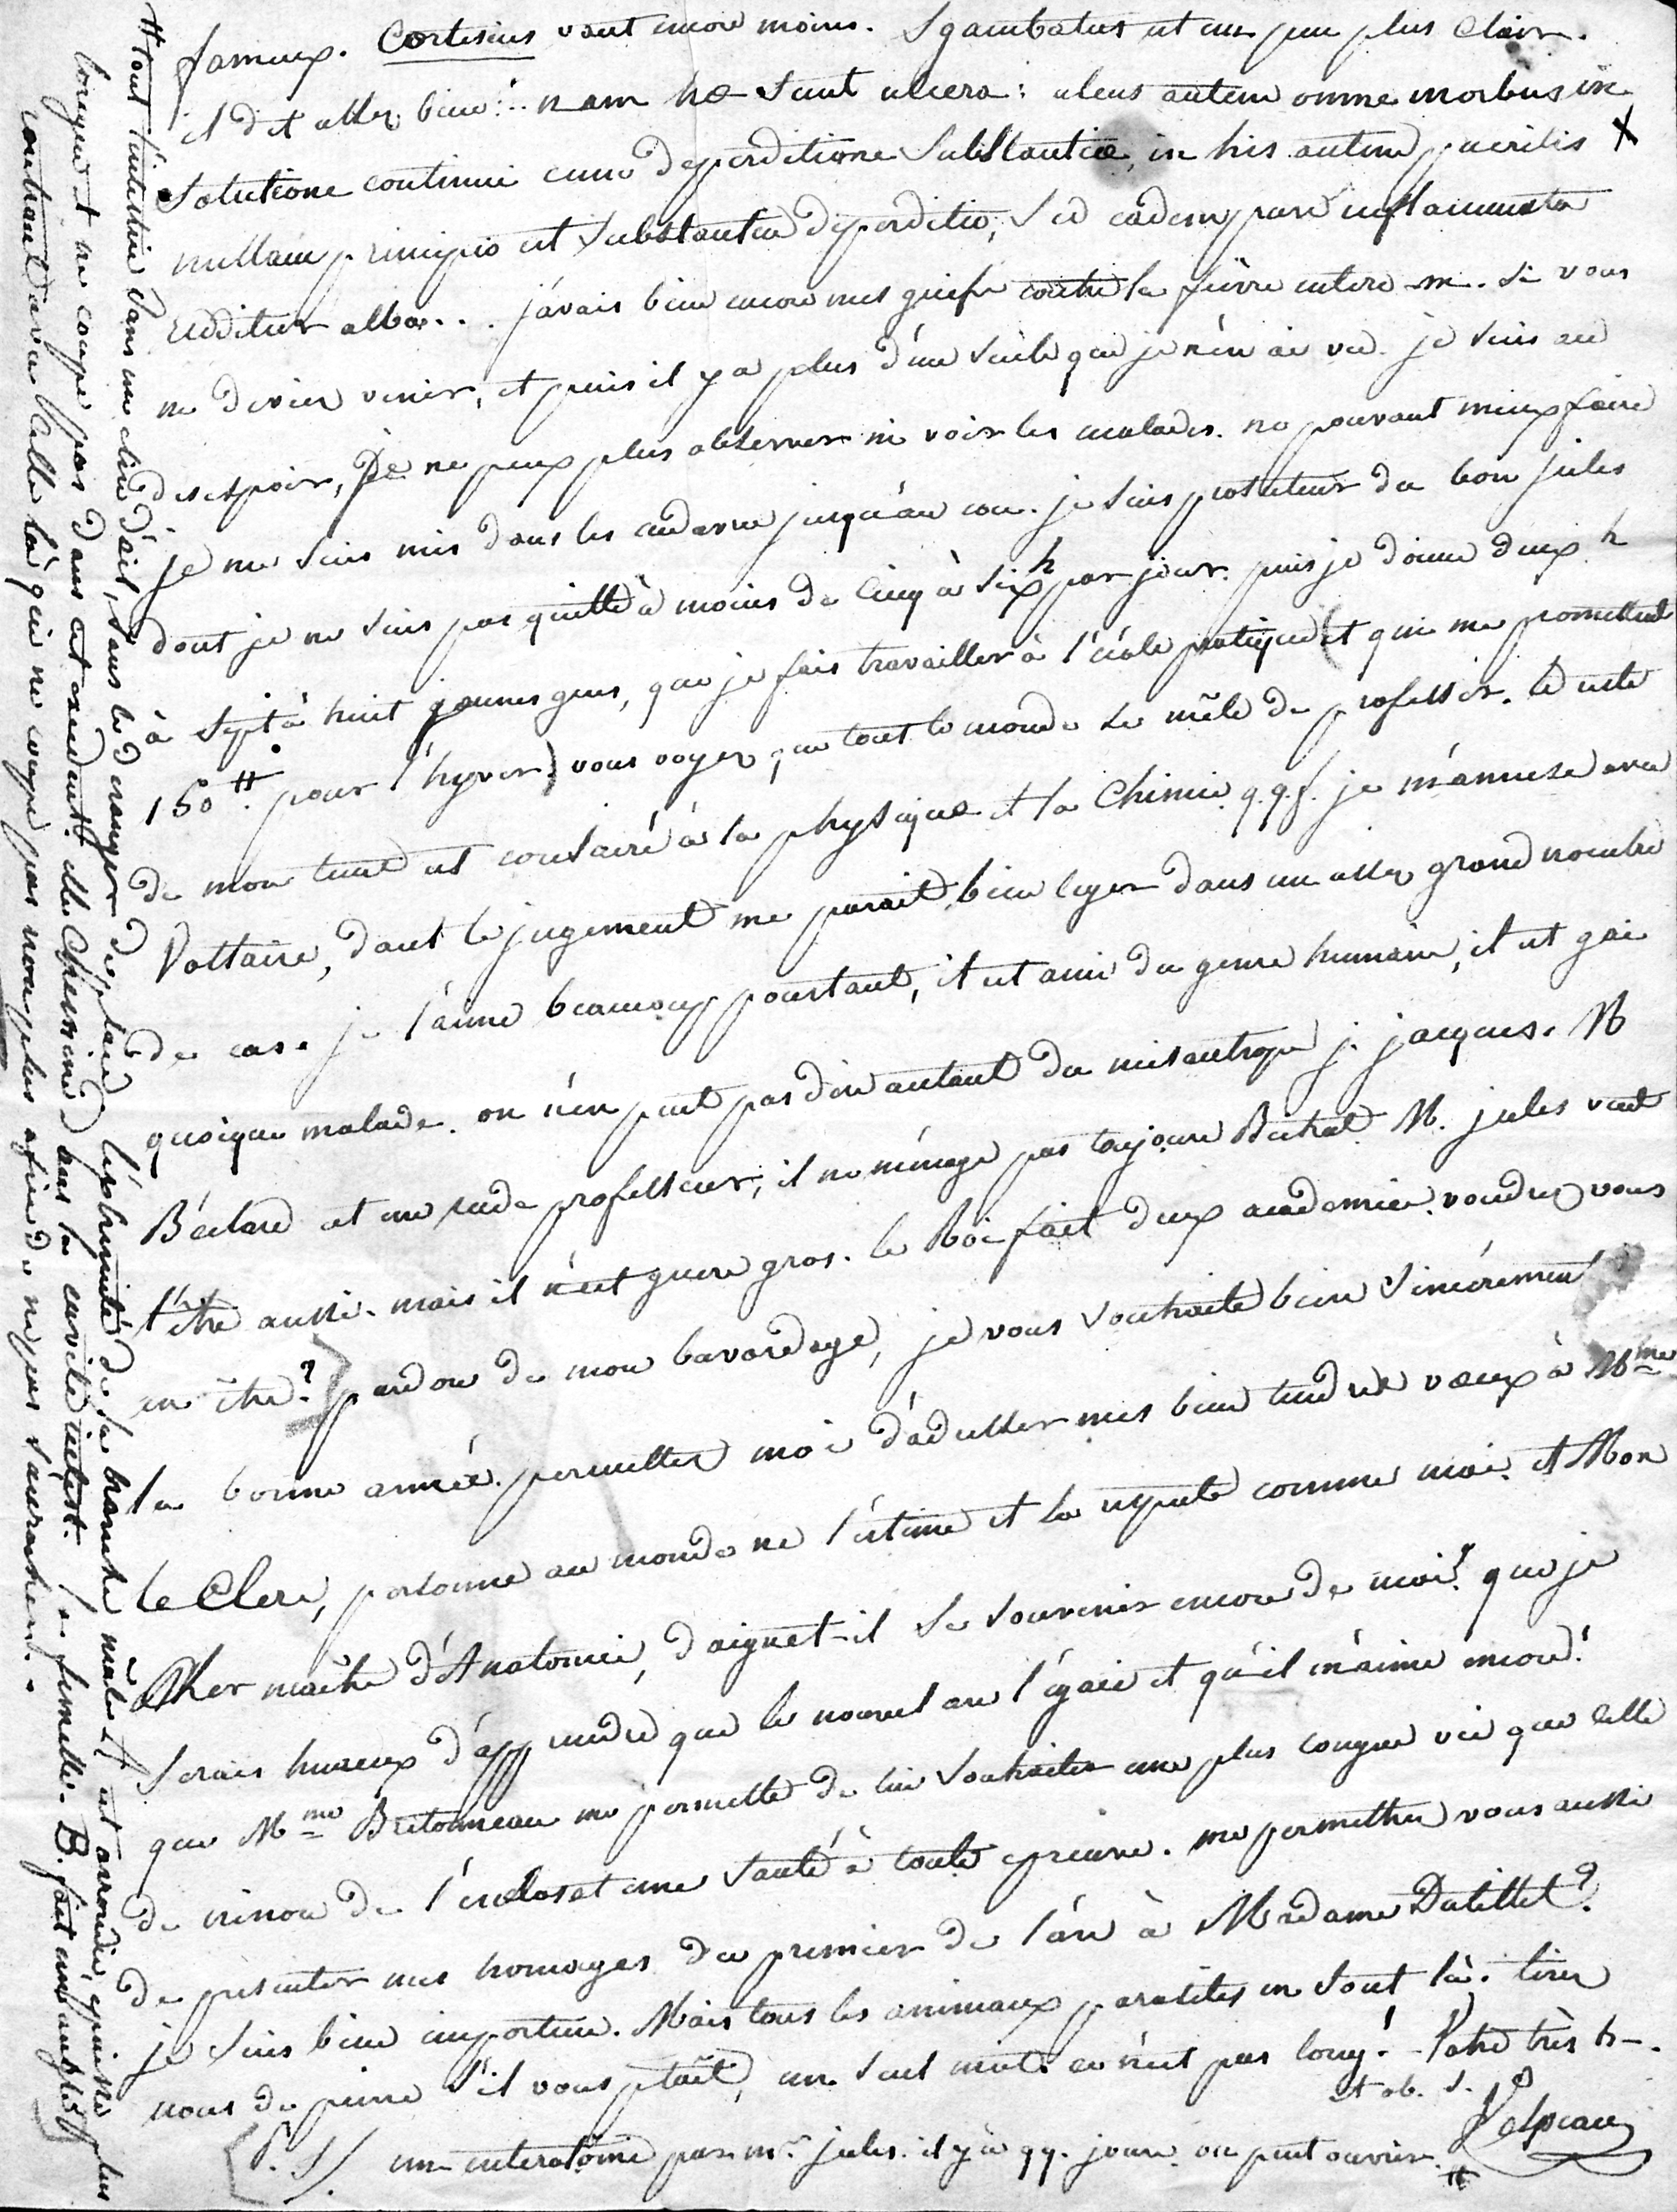 fameux. Cortesius vaut encore moins. Sgambatus est un peu plus clair.
il dit assez bien: .. nam hæ sunt ulcera: ulcus autem omne morbus in
solutione continui cum deperditione substantiæ, in his autem puerilis X
nullam principio est substantiæ deperditio, sed eadem pars inflammata
redditur alba... j'avais bien encore mes griefs contre la fièvre entero-m. si vous
ne deviez venir, et puis il y a plus d'un siècle que je n'en ai vu. je suis au
desespoir, Je ne peux plus observer ni voir les malades. ne pouvant mieux faire
je me suis mis dans les cadavre jusqu'au cou. je suis prosecteur du bon jules
dont je ne suis pas quitte à moins de cinq à six h par jour. puis je donne deux h
à sept à huit jeunes gens, que je fais travailler à l'école pratique (et qui me promettent
150 ₶. pour l'hyver) vous voyez que tout le monde se mêle de professer. le reste
de mon tems est consacré à la physique et la Chimie q.q.f. je m'amuse avec
Voltaire, dont le jugement me parait bien leger dans un assez grand nombre
de cas. je l'aime beaucoup pourtant, il est ami du genre humain, il est gai
quoique malade. on n'en peut pas dire autant du misantrope j. jacques. M
Béclard est un rude professeur, il ne ménage pas toujours Bichat. M. jules veut
l'être aussi. mais il n'est guere gros. le Roi fait deux academies. voudrez vous
en être? pardon de mon bavardage, je vous souhaite bien sincérement
la bonne année. permettez moi d'adresser mes bien tendres vœux à Mme
le Clerc, personne au monde ne l'estime et la respecte comme moi. et Mon
Cher maître d'Anatomie, daignet-il se souvenir encore de moi? que je
serais heureux d'apprendre que le nouvel an l'égaie et qu'il m'aime encore!
que Mme Bretonneau me permette de lui souhaiter une plus longue vie que celle
de ninon de l'enclos et une santé à toute epreuve. me permettrez vous aussi
de presenter mes homages du premier de l'an à Madame Dutillet?
je suis bien importun. Mais tous les animaux parasites en sont là. tirez
nous de peine s'il vous plait, un seul mot. ce n'est pas long! - Votre très h-.
et ob. s.
Velpeau
P. S/. un enterotome par mr jules. il y a qq. jours on peut ouvrir. ⌗
⌗ tout l'intestin dans un clin d'œil, sans le deranger de place. l'éxtrémité de sa branche mâle est arrondie, epaisse plus
longue et ne coupe pas dans cet excedent. elle chemine dans la cavité intest. la femelle. B. fait une anfle
couchant devant celle là qui ne coupe pas non plus afin de ne pas s'accrocher. .